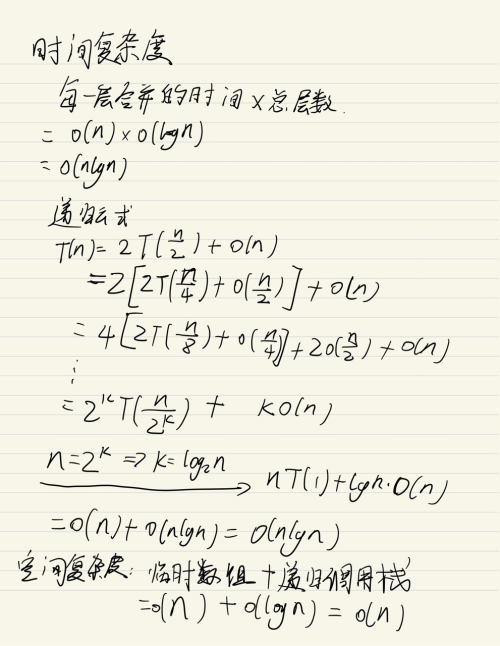 时间复杂度
每一层合并的时间 × 总层数.
= O(n) × O(logn)
= O(nlgn)
递归公式
T(n) = 2T(n/2) + O(n)
= 2[2T(n/4) + O(n/2)] + O(n)
= 4[2T(n/8) + O(n/4)] + 2O(n/2) + O(n)
⋮
= 2^k T(n/2^k) + kO(n)
n=2^k ⇒ k=log₂n → nT(1) + lgn·O(n)
= O(n) + O(nlgn) = O(nlgn)
空间复杂度: 临时数组 + 递归调用栈
= O(n) + O(logn) = O(n)